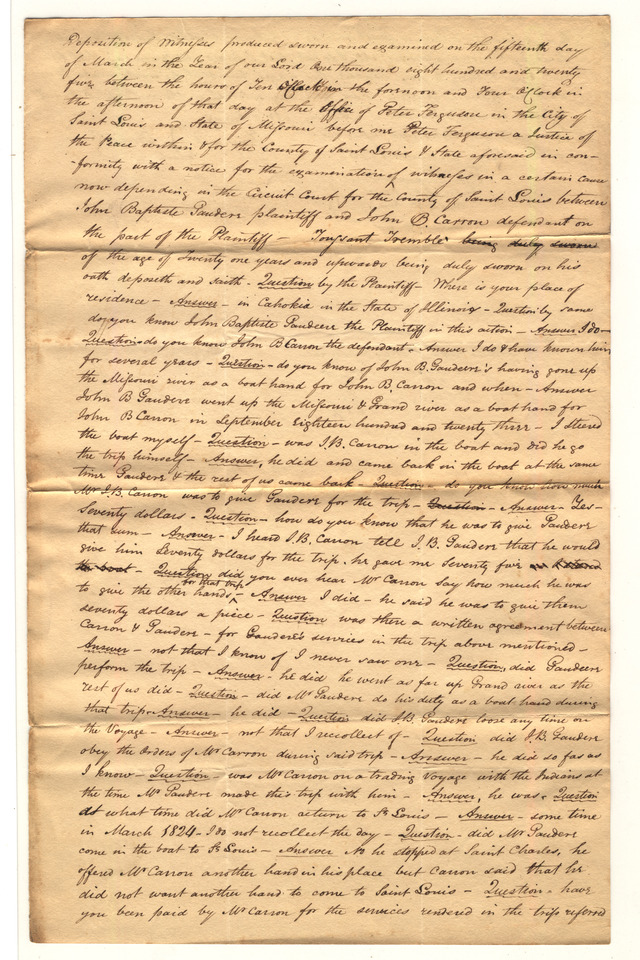 Deposition of Witnesses produced sworn and examined on the fifteenth day
of March in the Year of our Lord One thousand eight hundred and twenty
five between the hours of Ten O'Clock in the forenoon and Four O'Clock in
the afternoon of that day at the Office of Peter Ferguson in the City of
Saint Louis and State of Missouri before me Peter Ferguson a Justice of
the Peace within & for the County of Saint Louis & State aforesaid in con-
-formity with a notice for the examination of witnesses in a certain cause
now depending in the Circuit Court for the County of Saint Louis between
John Baptiste Gaudere plaintiff and John B. Carron defendant on
the part of the Plaintiff - Toussant Tremble being duly sworn
of the age of Twenty one years and upwards being duly sworn on his
oath deposeth and saith - Question by the Plaintiff - Where is your place of
residence - Answer - in Cahokia in the State of Illinois - Question by same
do you know John Baptiste Gaudere the Plaintiff in this action - Answer I do -
Question - do you know John B Carron the defendant - Answer I do & have known him
for several years - Question - do you know of John B. Gaudere's having gone up
the Missouri river as a boat hand for John B Carron and when - Answer
John B Gaudere went up the Missouri & Grand river as a boat hand for
John B Carron in September Eighteen hundred and twenty three - I steered
the boat myself - Question - was J.B. Carron in the boat and did he go
the trip himself - Answer, he did and came back in the boat at the same
time Gaudere & the rest of us came back Question - do you know how much
Mr J.B. Carron was to give Gaudere for the trip - Question - Answer - Yes -
Seventy dollars - Question - how do you know that he was to give Gaudere
that sum - Answer - I heard J.B. Carron tell J.B. Gaudere that he would
give him Seventy dollars for the trip, he gave me Seventy five
the boat - Question did you ever hear Mr Carron say how much he was
to give the other hands for that trip - Answer I did - he said he was to give them
seventy dollars a piece - Question was there a written agreement between
Carron & Gaudere - for Gaudere's services in the trip above mentioned -
Answer - not that I know of I never saw one - Question, did Gaudere
perform the trip - Answer - he did he went as far up Grand river as the
rest of us did - Question - did Mr Gaudere do his duty as a boat hand during
that trip - Answer - he did - Question did J.B. Gaudere loose any time on
the Voyage - Answer - not that I recollect of - Question did J.B. Gaudere
obey the Orders of Mr Carron during said trip - Answer - he did so far as
I know - Question - was Mr Carron on a trading Voyage with the Indians at
the time Mr Gaudere made this trip with him - Answer, he was - Question
At what time did Mr Carron return to St Louis - Answer - some time
in March 1824 - I do not recollect the day - Question - did Mr Gaudere
come in the boat to St Louis - Answer No he stopped at Saint Charles, he
offered Mr Carron another hand in his place but Carron said that he
did not want another hand to come to Saint Louis - Question - have
you been paid by Mr Carron for the services rendered in the trip referred